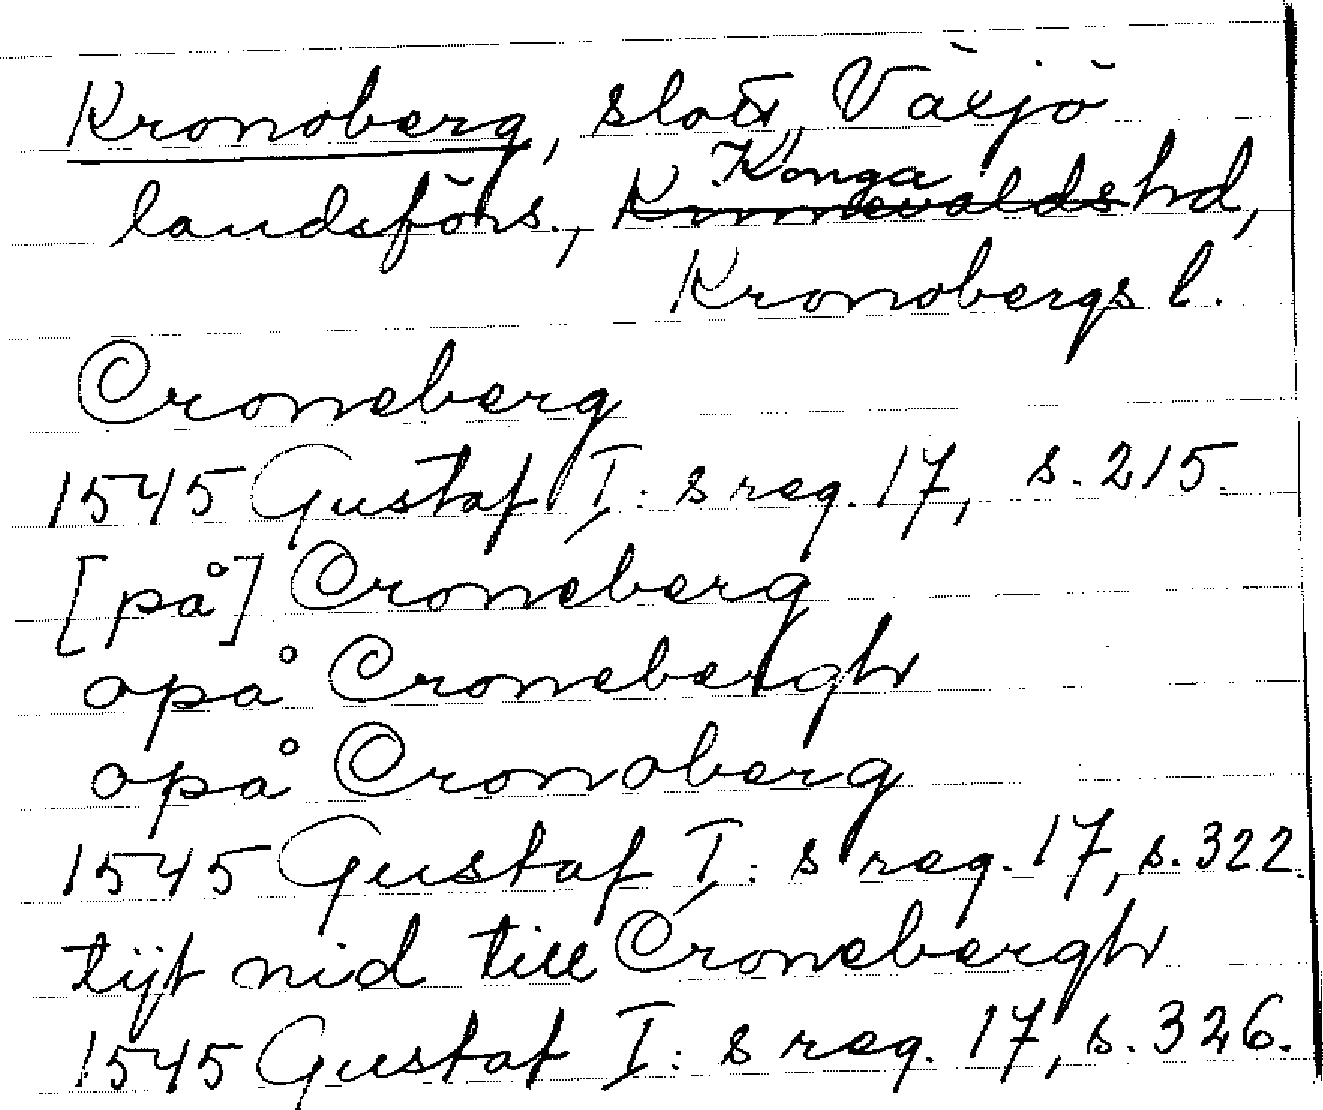 Kronoberg, slott, Växjö
landsförs., Konga Kinnevalds hd,
Kronobergs l.
Croneberg
1545 Gustaf I: s reg. 17, s. 215.
[på] Croneberg
opå Cronebergh
opå Cronoberg
1545 Gustaf I: s reg. 17, s. 322.
tijt nid till Cronebergh
1545 Gustaf I: s reg. 17, s. 326.